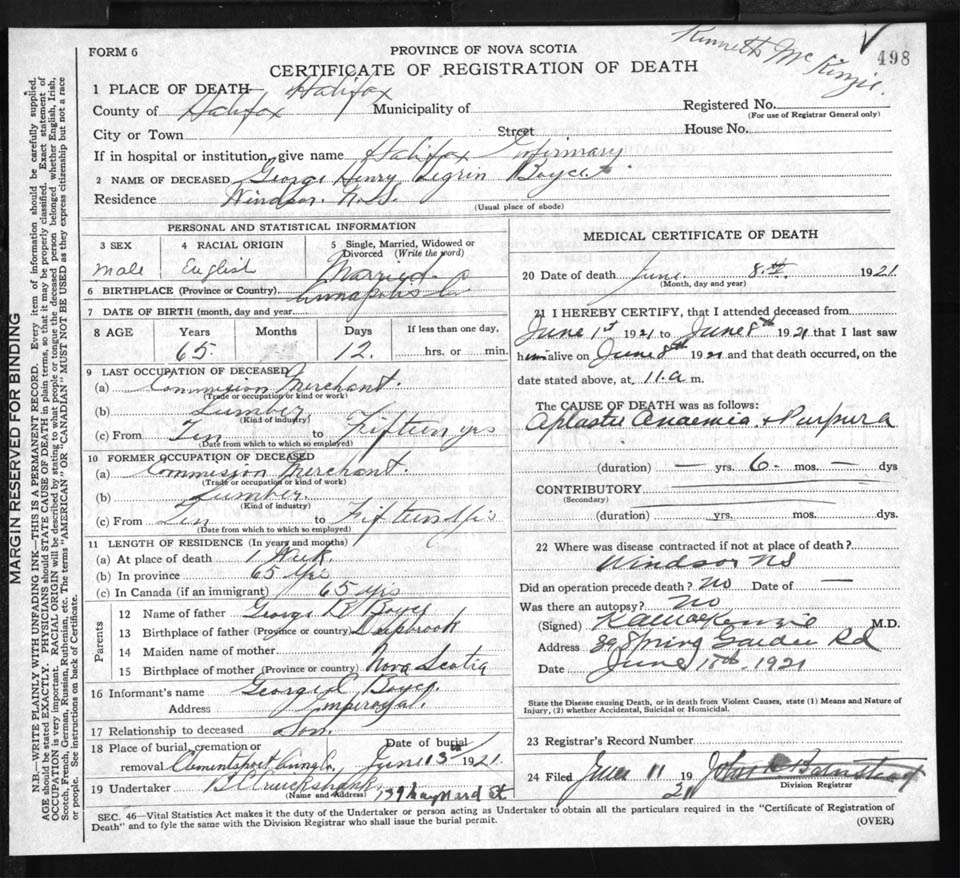 Kenneth McKinzie.
498
FORM 6
PROVINCE OF NOVA SCOTIA
CERTIFICATE OF REGISTRATION OF DEATH
1 PLACE OF DEATH Halifax
County of Halifax Municipality of
Registered No.
(For use of Registrar General only)
City or Town Street House No.
If in hospital or institution, give name Halifax Infirmary
2 NAME OF DECEASED George Henry
Residence Windsor. N.S.
(Usual place of abode)
PERSONAL AND STATISTICAL INFORMATION
3 SEX
male
4 RACIAL ORIGIN
English
5 Single, Married, Widowed or Divorced (Write the word)
Married
6 BIRTHPLACE (Province or Country) Annapolis Co
7 DATE OF BIRTH (month, day and year)
8 AGE Years Months Days If less than one day,
65 12. hrs. or min.
9 LAST OCCUPATION OF DECEASED
(a) Commission Merchant.
(Trade or occupation or kind or work)
(b) Lumber.
(Kind of industry)
(c) From Ten to Fifteen yrs
(Date from which to which so employed)
10 FORMER OCCUPATION OF DECEASED
(a) Commission Merchant.
(Trade or occupation or kind of work)
(b) Lumber.
(Kind of industry)
(c) From Ten to Fifteen Yrs
(Date from which to which so employed)
11 LENGTH OF RESIDENCE (In years and months)
(a) At place of death 1 Week.
(b) In province 65 yrs
(c) In Canada (if an immigrant) 65 yrs
Parents
12 Name of father George R
13 Birthplace of father (Province or country) Deepbrook
14 Maiden name of mother
15 Birthplace of mother (Province or country) Nova Scotia
16 Informant's name George
Address Imperoyal.
17 Relationship to deceased Son.
18 Place of burial, cremation or removal Clementsport
Date of burial June 13th 1921.
19 Undertaker Cruickshank
(Name and Address) Maynard St
MEDICAL CERTIFICATE OF DEATH
20 Date of death June 8th 1921
(Month, day and year)
21 I HEREBY CERTIFY, that I attended deceased from
June 1st 1921 to June 8th 1921 that I last saw
him alive on June 8th 1921 and that death occurred, on the
date stated above, at 11.a m.
The CAUSE OF DEATH was as follows:
Aplastic Anaemia + Purpura
(duration) — yrs. 6 - mos. — dys
CONTRIBUTORY
(Secondary)
(duration) yrs. mos. dys.
22 Where was disease contracted if not at place of death?
Windsor NS
Did an operation precede death? No Date of —
Was there an autopsy? No
(Signed) K A MacKenzie M.D.
Address 39 Spring Garden Rd
Date June 10th. 1921
State the Disease causing Death, or in death from Violent Causes, state (1) Means and Nature of
Injury, (2) whether Accidental, Suicidal or Homicidal.
23 Registrar's Record Number
24 Filed June 11 19 21 John
Division Registrar
SEC. 46—Vital Statistics Act makes it the duty of the Undertaker or person acting as Undertaker to obtain all the particulars required in the "Certificate of Registration of
Death" and to fyle the same with the Division Registrar who shall issue the burial permit.
(OVER)
MARGIN RESERVED FOR BINDING
N.B.—WRITE PLAINLY WITH UNFADING INK—THIS IS A PERMANENT RECORD. Every item of information should be carefully supplied.
AGE should be stated EXACTLY. PHYSICIANS should STATE CAUSE OF DEATH in plain terms, so that it may be properly classified. Exact statement of
OCCUPATION is very important. RACIAL ORIGIN will be described by stating to what people or tongue the deceased person belonged whether English, Irish,
Scotch, French, German, Russian, Ruthenian, etc. The terms "AMERICAN" OR "CANADIAN" MUST NOT BE USED as they express citizenship but not a race
or people. See instructions on back of Certificate.